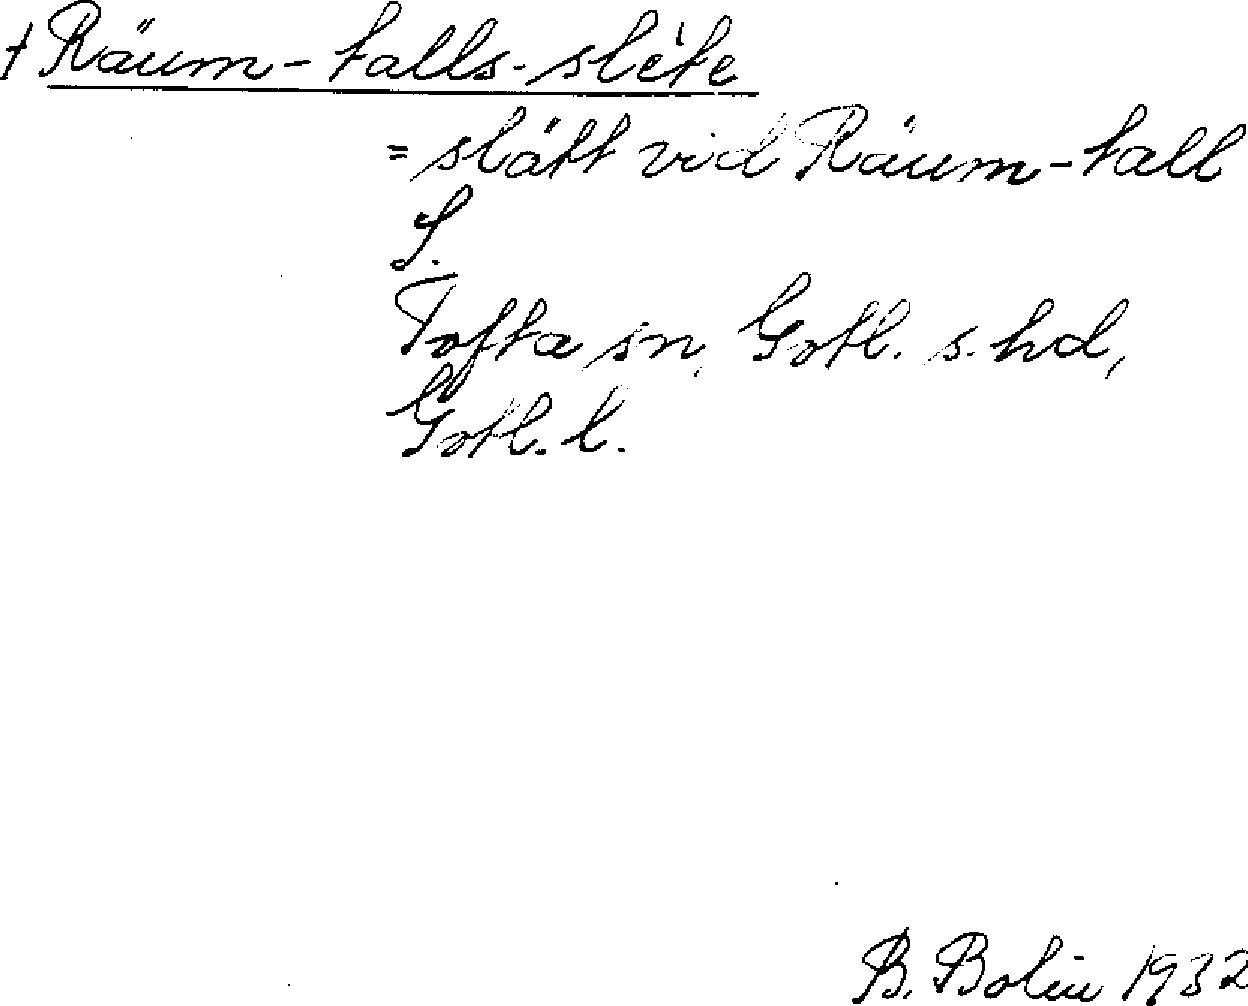 † Räum-talls-slète
= slätt vid Räum-tall
S.
Tofta sn, Gotl. s. hd,
Gotl. l.
B. Bolin 1932